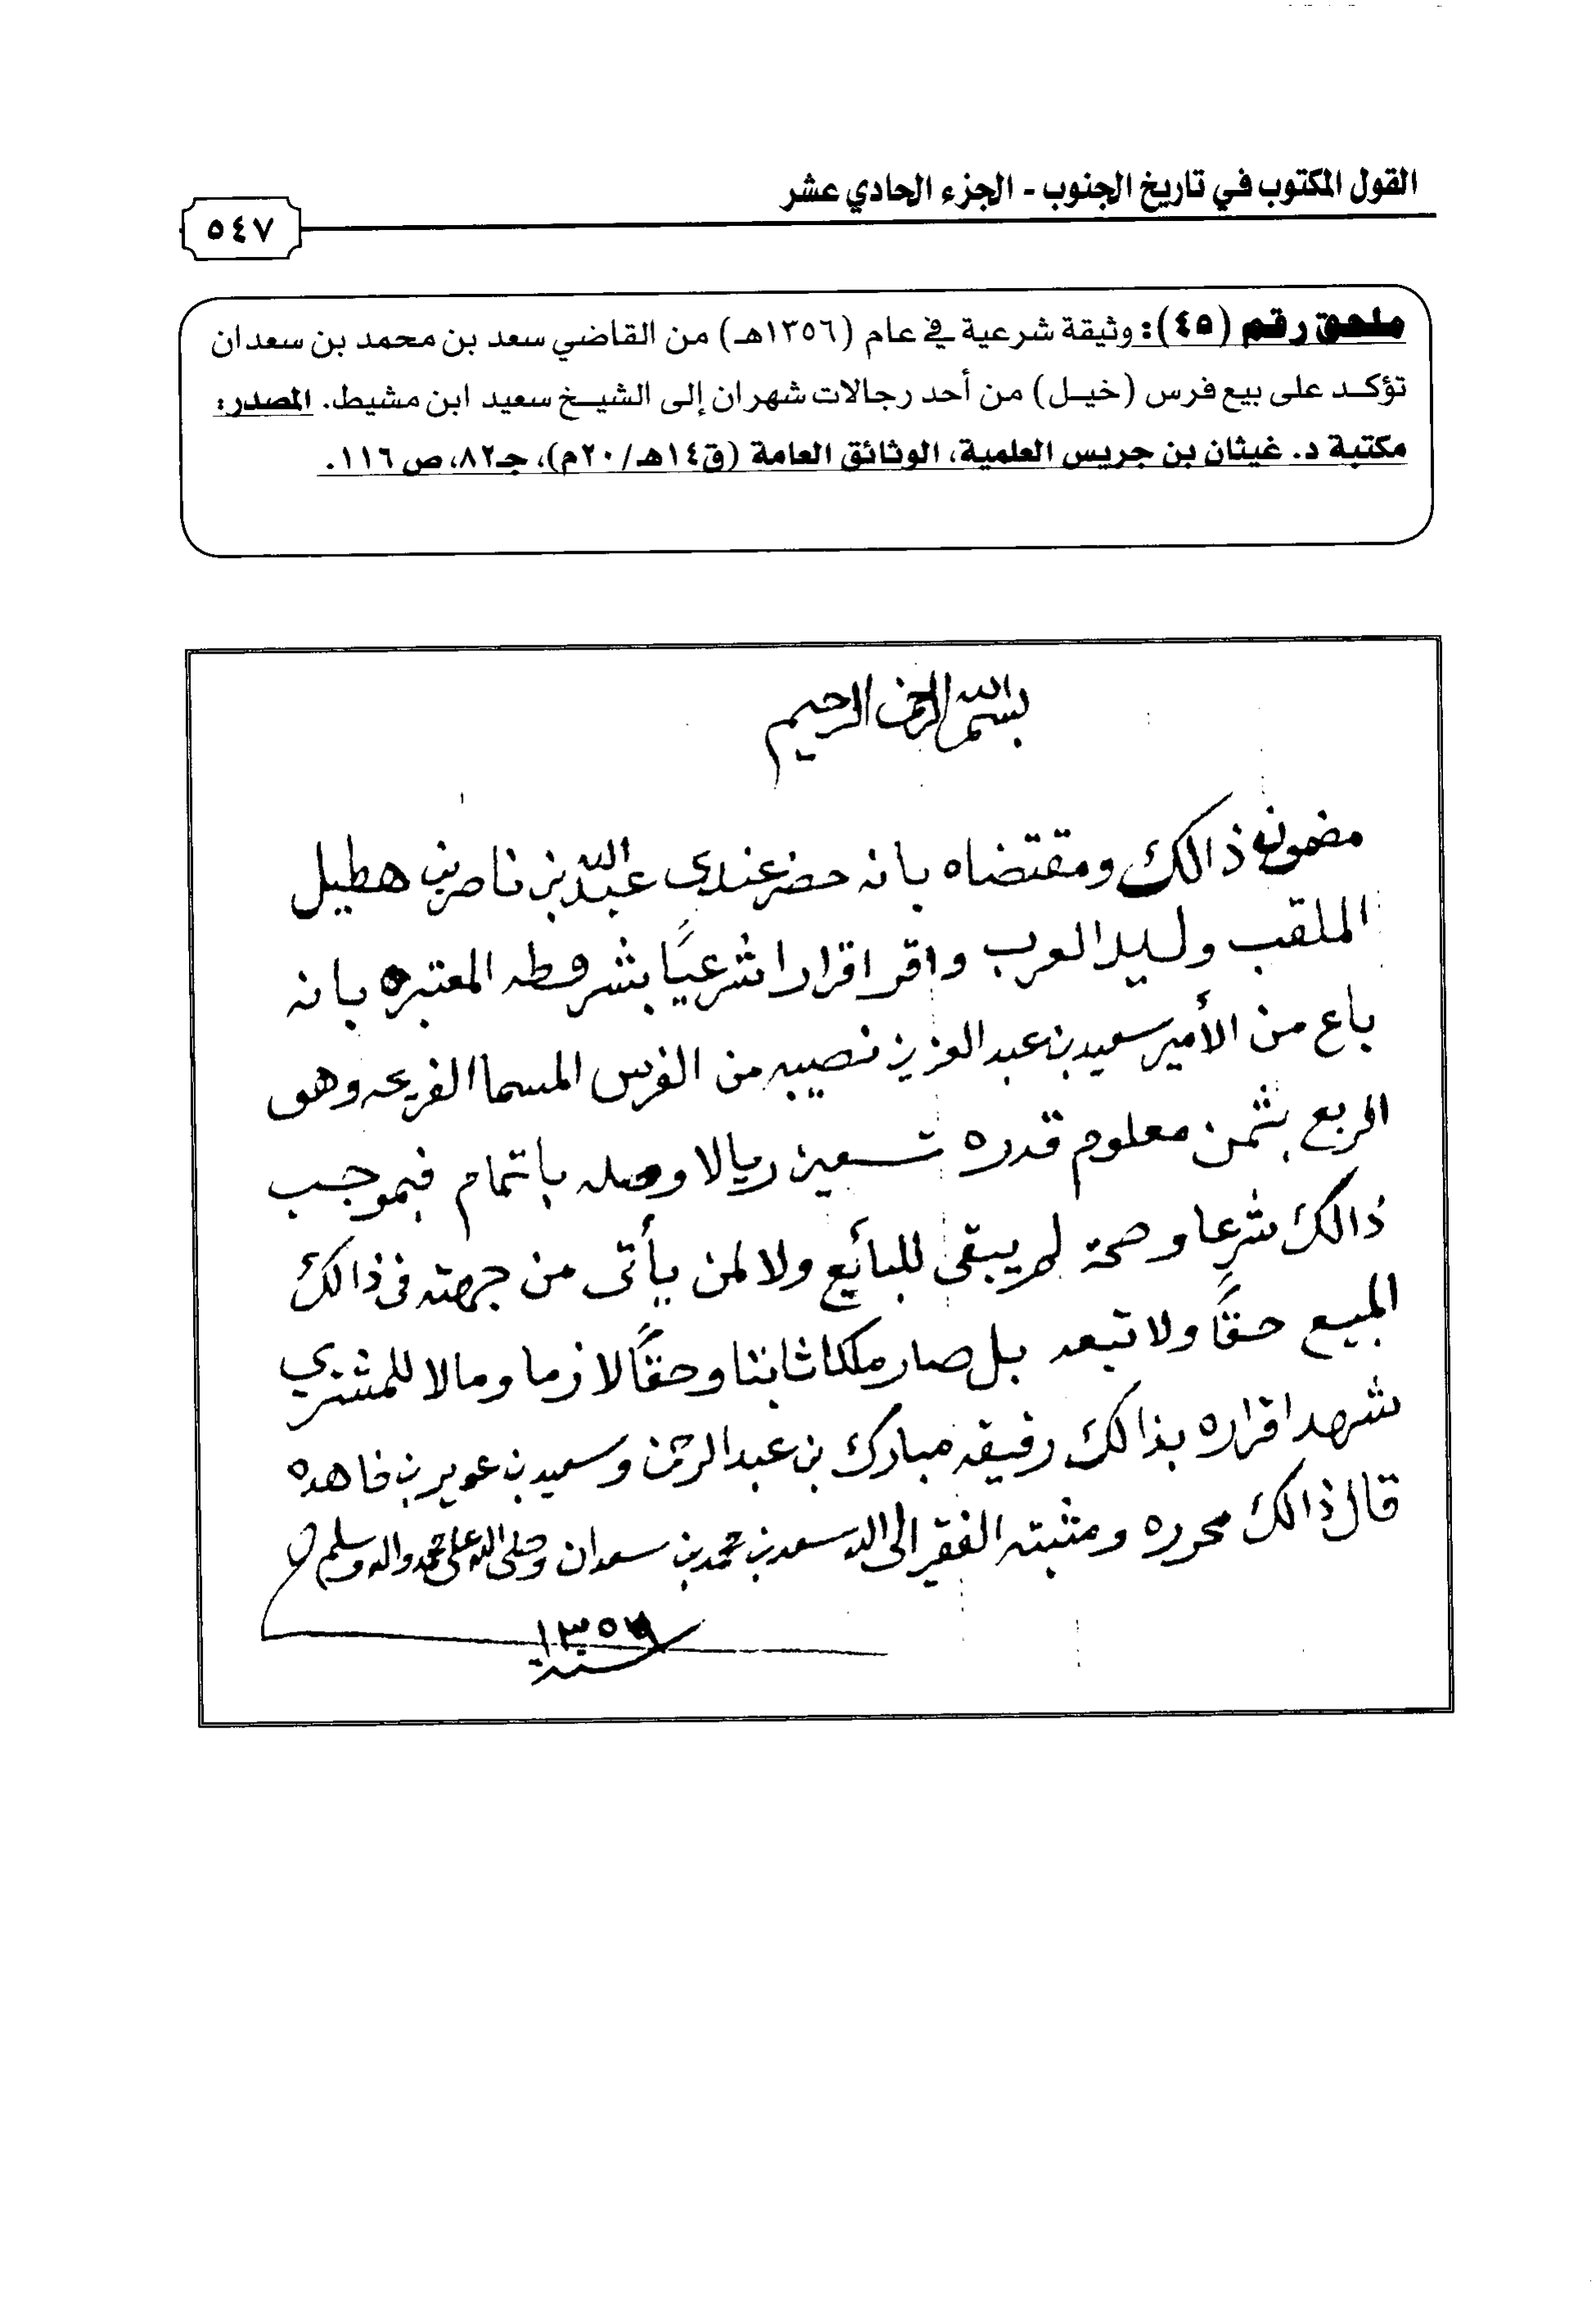 القول المكتوب في تاريخ الجنوب - الجزء الحادي عشر
٥٤٧
ملحق رقم (٤٥): وثيقة شرعية في عام (١٣٥٦هـ) من القاضي سعد بن محمد بن سعدان
تؤكد على بيع فرس (خيل) من أحد رجالات شهران إلى الشيخ سعيد ابن مشيط. المصدر:
مكتبة د. غيثان بن جريس العلمية، الوثائق العامة (ق١٤هـ/٢٠م)، جـ٨٢، ص ١١٦.
بسم الله الرحمن الرحيم
مضمون ذالك ومقتضاه بانه حضر عندي عبدالله بن ناصر بن هطيل
الملقب وليد العرب واقر اقرارا شرعيًا بشروطه المعتبره بانه
باع من الأمير سعيد بن عبد العزيز نصيبه من الفرس المسما الفريعه وهو
الربع بثمن معلوم قدره تسعين ريالا وصله باتمام فبموجب
ذالك شرعا وصحة لم يبقى للبائع ولا لمن يأتى من جهته فى ذالك
المبيع حقًا ولا تبعه بل صار ملكا ثابتا وحقًا لازما ومالا للمشتري
شهد اقراره بذالك رفيقه مبارك بن عبد الرحمن وسعيد بن عوير بن
قال ذالك محرره ومثبته الفقير الى الله سعد بن محمد بن سعدان وصلى الله على محمد واله وسلم
سنة ١٣٥٦